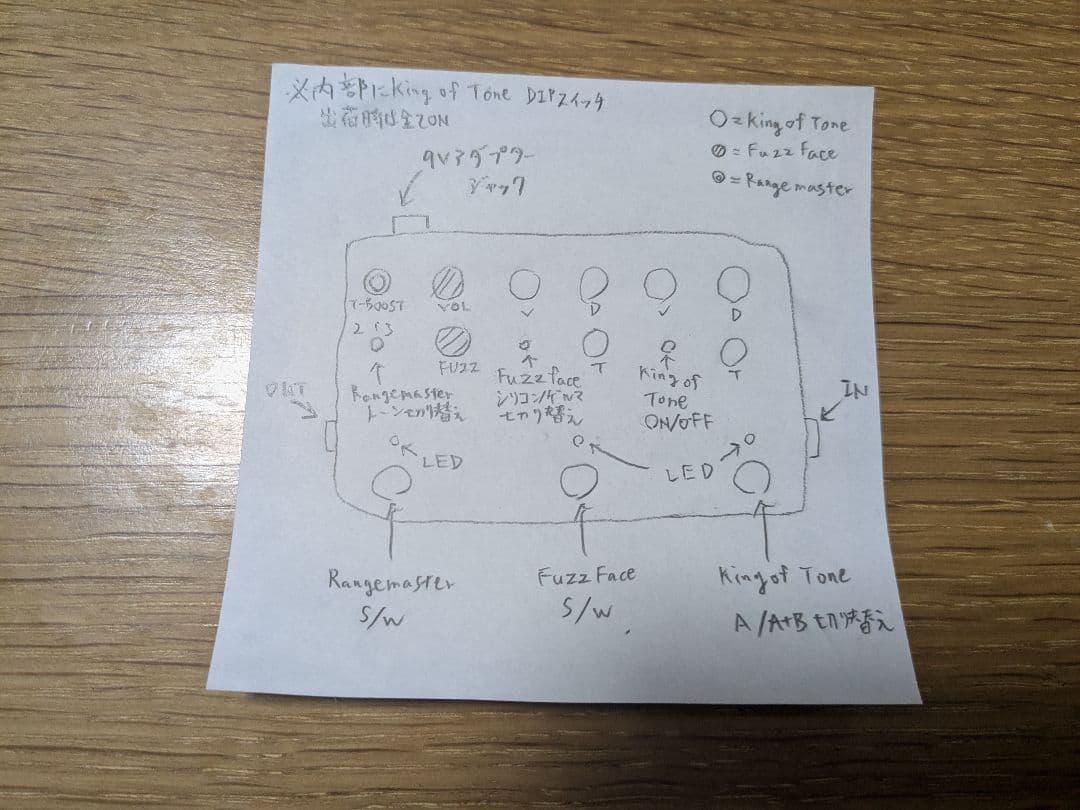 ※内部にKing of Tone DIPスイッチ
出荷時は全てON
○=King of Tone
=Fuzz Face
◎=Rangemaster
9Vアダプター
ジャック
T-BOOST
VOL
V
D
V
D
2 1 3
FUZZ
T
T
Rangemaster
トーン切り替え
Fuzzface
シリコン/ゲルマ
切り替え
King of
Tone
ON/OFF
OUT
IN
LED
LED
Rangemaster
S/W
Fuzz Face
S/W
King of Tone
A/A+B 切り替え